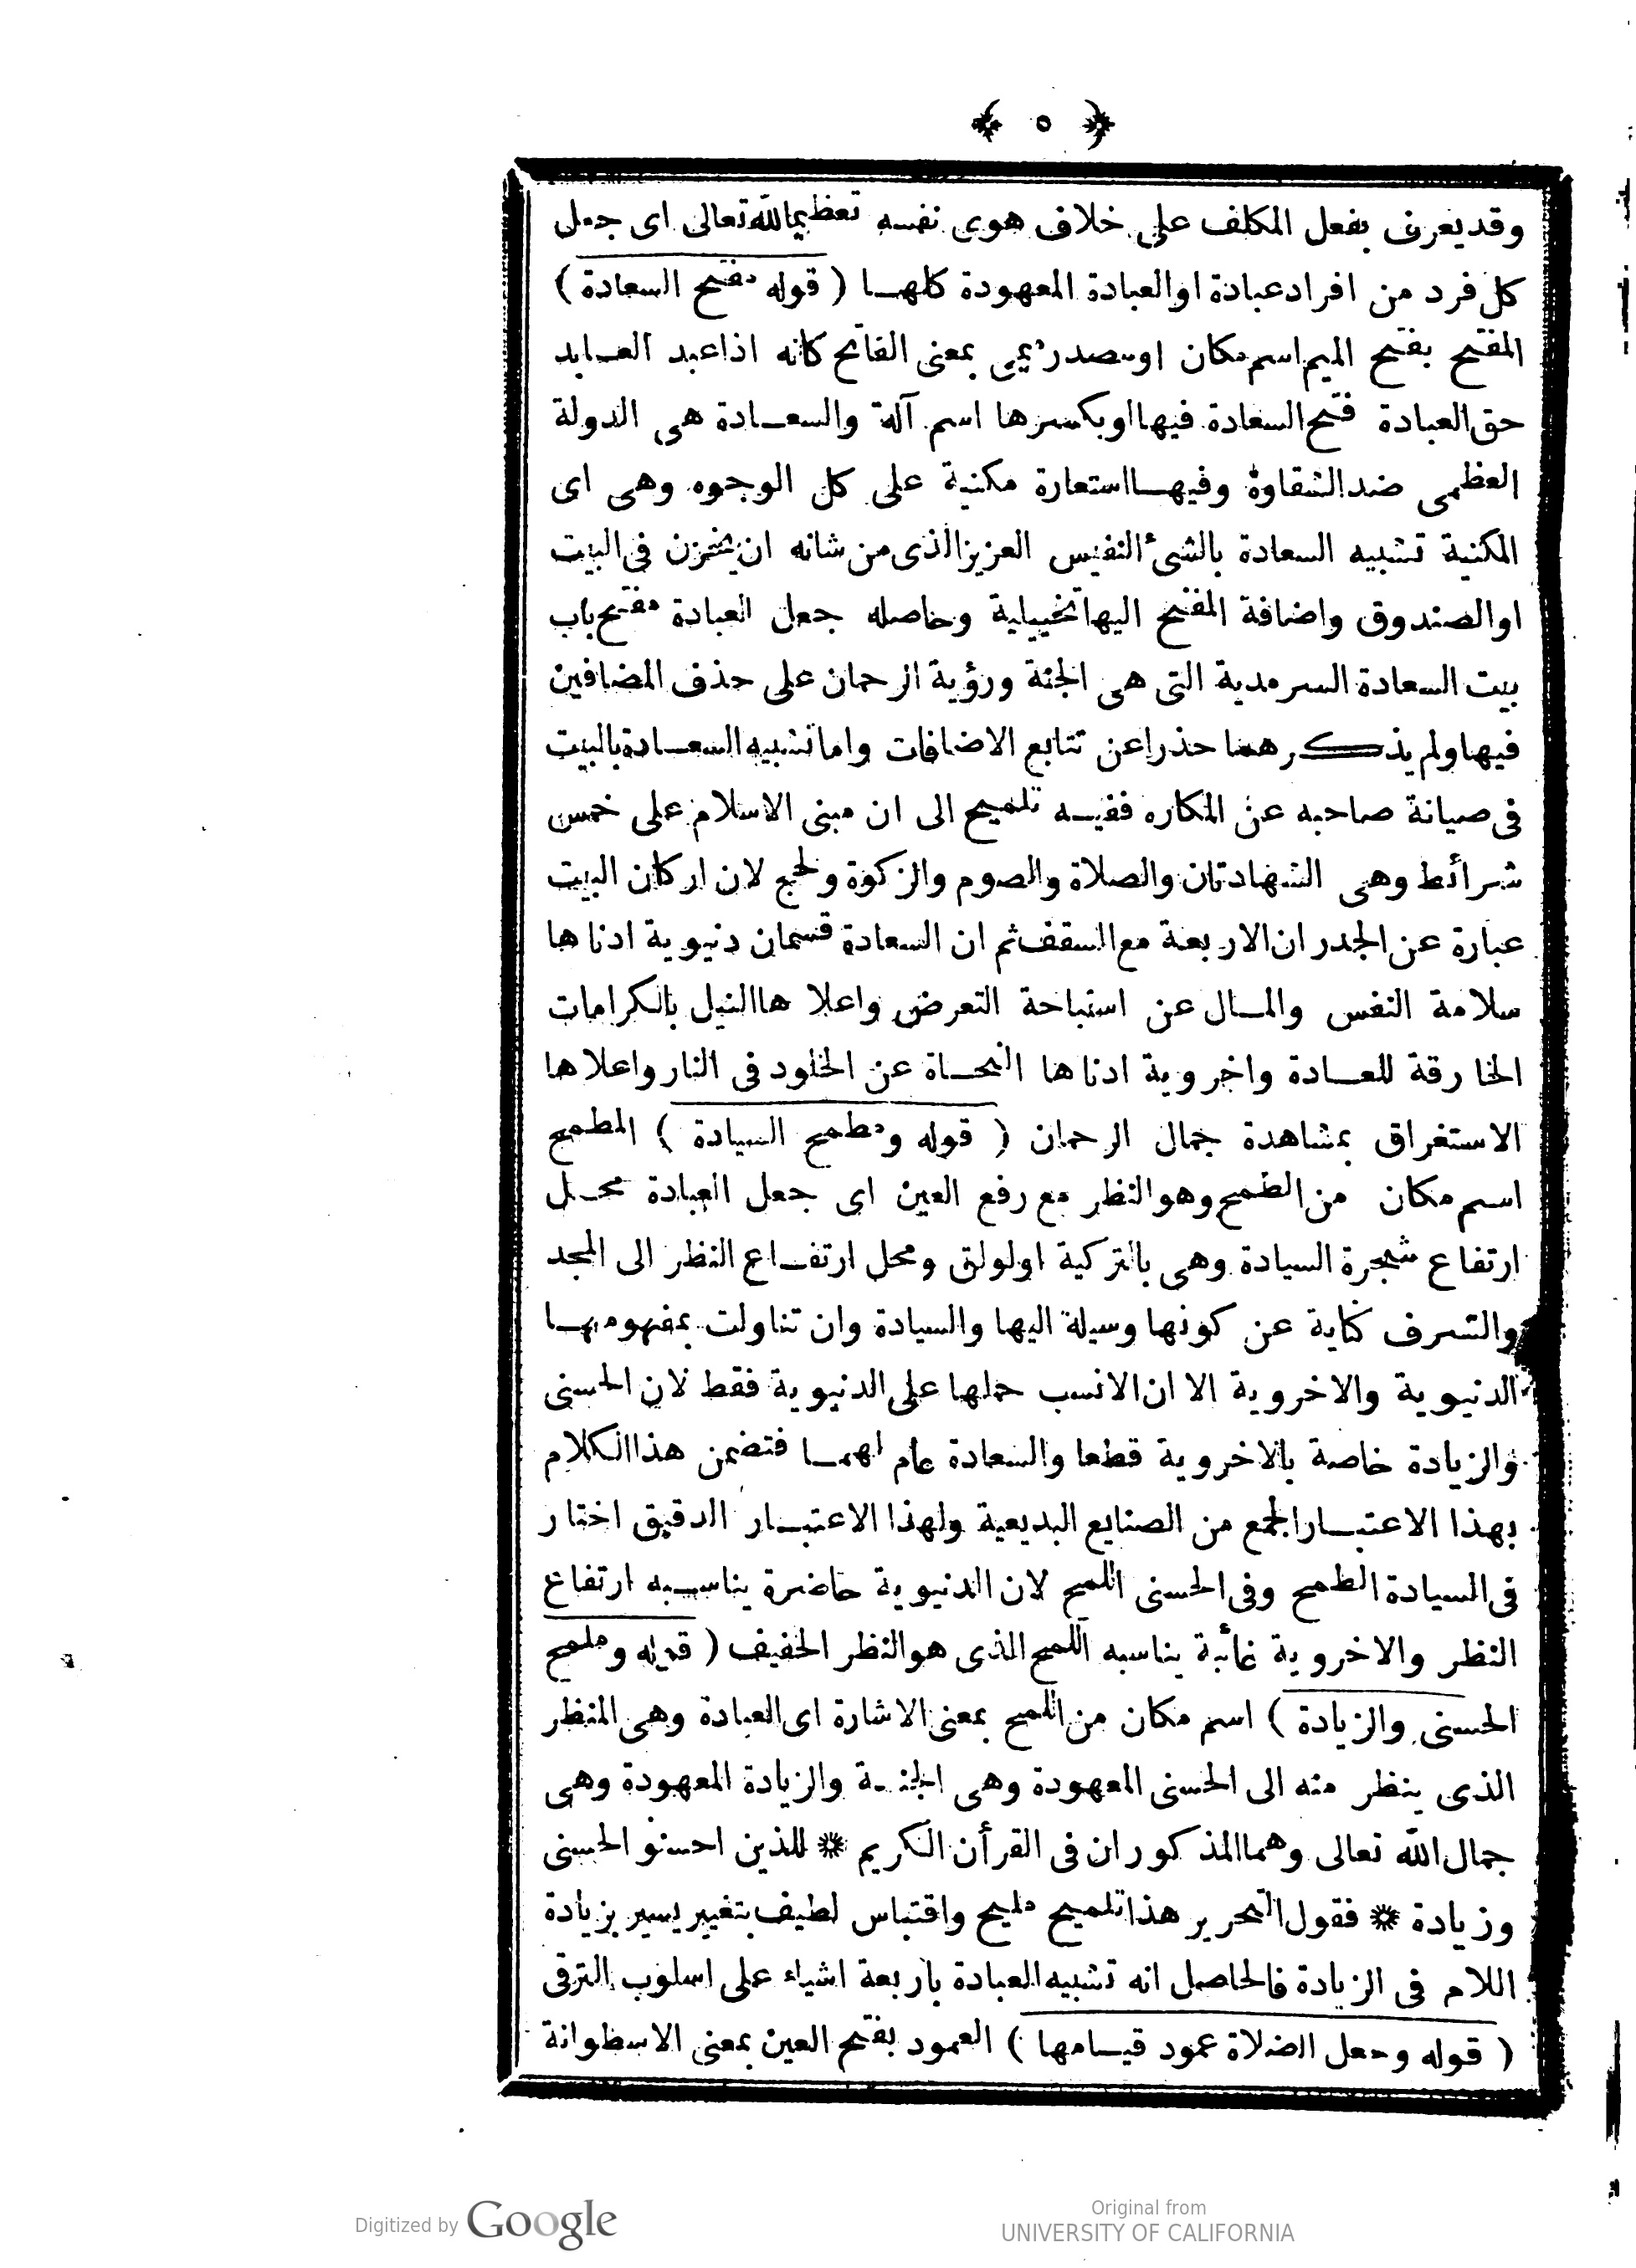 ﴿ ٥ ﴾
وقد يعرف بفعل المكلف على خلاف هوى نفسه تعظيما لله تعالى اى جعل
كل فرد من افراد عبادة او العبادة المعهودة كلها ( قوله مفتح السعادة )
المفتح بفتح الميم اسم مكان او مصدر ميمى بمعنى الفاتح كانه اذا عبد العابد
حق العبادة فتح السعادة فيها او بكسرها اسم آلة والسعادة هى الدولة
العظمى ضد الشقاوة وفيها استعارة مكنية على كل الوجوه وهى اى
المكنية تشبيه السعادة بالشئ النفيس العزيز الذى من شانه ان يخزن فى البيت
او الصندوق واضافة المفتح اليها تخييلية وحاصله جعل العبادة مفتح باب
بيت السعادة السرمدية التى هى الجنة ورؤية الرحمان على حذف المضافين
فيها ولم يذكرهما حذرا عن تتابع الاضافات واما تشبيه السعادة بالبيت
فى صيانة صاحبه عن المكاره ففيه تلميح الى ان مبنى الاسلام على خمس
شرائط وهى الشهادتان والصلاة والصوم والزكوة ولحج لان اركان البيت
عبارة عن الجدران الاربعة مع السقف ثم ان السعادة قسمان دنيوية ادناها
سلامة النفس والمال عن استباحة التعرض واعلاها النيل بالكرامات
الخارقة للعادة واخروية ادناها النجاة عن الخلود فى النار واعلاها
الاستغراق بمشاهدة جمال الرحمان ( قوله ومطمح السيادة ) المطمح
اسم مكان من الطمح وهو النظر مع رفع العين اى جعل العبادة محل
ارتفاع شجرة السيادة وهى بالتركية اولولق ومحل ارتفاع النظر الى المجد
والشرف كناية عن كونها وسيلة اليها والسيادة وان تناولت بمفهومها
الدنيوية والاخروية الا ان الانسب حملها على الدنيوية فقط لان الحسنى
والزيادة خاصة بالاخروية قطعا والسعادة عام لهما فتضمن هذا الكلام
بهذا الاعتبار الجمع من الصنايع البديعية ولهذا الاعتبار الدقيق اختار
فى السيادة الطمح وفى الحسنى اللمح لان الدنيوية حاضرة يناسبه ارتفاع
النظر والاخروية غائبة يناسبه اللمح الذى هو النظر الخفيف ( قوله وملمح
الحسنى والزيادة ) اسم مكان من اللمح بمعنى الاشارة اى العبادة وهى المنظر
الذى ينظر منه الى الحسنى المعهودة وهى الجنة والزيادة المعهودة وهى
جمال الله تعالى وهما المذكوران فى القرأن الكريم * للذين احسنو الحسنى
وزيادة * فقول النحرير هذا تلميح مليح واقتباس لطيف بتغيير يسير بزيادة
اللام فى الزيادة فالحاصل انه تشبيه العبادة باربعة اشياء على اسلوب الترقى
( قوله وجعل الصلاة عمود قيامها ) العمود بفتح العين بمعنى الاسطوانة
Digitized by Google
Original from
UNIVERSITY OF CALIFORNIA